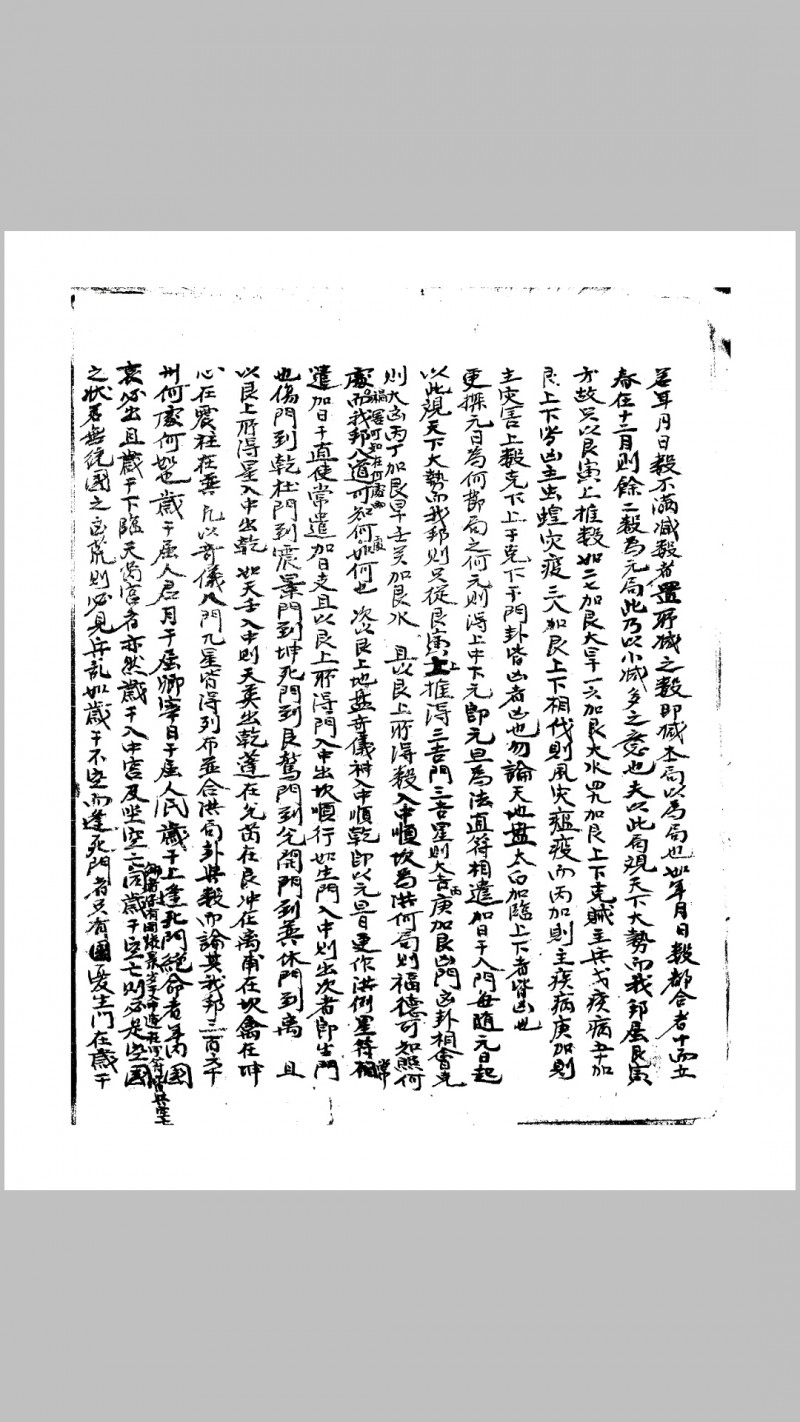 若年月日數不滿減數者置所減之數卽減本局以爲局也如年月日數都合者十而立
春在十二月則餘二數為元局此乃以小減多之意也夫以此局觀天下大勢而我邦屬艮寅
方故只以艮寅上推數如二七加艮大旱一六加艮大水四九加艮上下克賊主兵戈疾病五十加
艮上下皆凶主虫蝗灾疫三八加艮上下相代則風灾瘟疫而丙加則主疾病庚加則
主灾害上數克下上干克下干門卦皆凶者凶也勿論天地盤太白加臨上下者皆凶也
更探元日為何節局之何元則得上中下元卽元旦為法直符相遣加日干八門每隨元日起
以此觀天下大勢而我邦則只從艮寅上推得三吉門三吉星則大吉庚丙加艮凶門凶卦相會克
則大凶丙丁加艮旱壬癸加艮水 且以艮上所得數入中順坎為洪何局則福德可知照何
處禍害可知在何處而我邦八道可知何處如何也 次以艮上地盤奇儀入中順乾卽以元旦日更作洪例星符相常
遣加日干直使常遣加日支且以艮上所得門入中出坎順行如生門入中則出次者卽生門
也傷門到乾杜門到震景門到坤死門到艮驚門到兌開門到巽休門到离 且
以艮上所得星入中出乾 如天壬入中則天英出乾蓬在兌芮在艮冲在离甫在坎禽在坤
心在震柱在巽 凡以奇儀八門九星皆得列布並合洪局卦與數而論其我邦三百六十
州何處何如也 歲干屬人君月干屬卿宰日干屬人民歲干上逢死門絕命者年內國
哀必出且歲干下臨天芮宮者亦然歲干入中宮及坐空亡同歲干空亡則必是空國
之狀若無繞國之凶荒則必見兵乱如歲干不空而逢死門者只有國憂生門在歲干